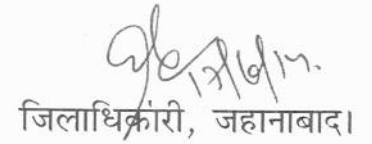 17/6/17.
जिलाधिकारी, जहानाबाद।